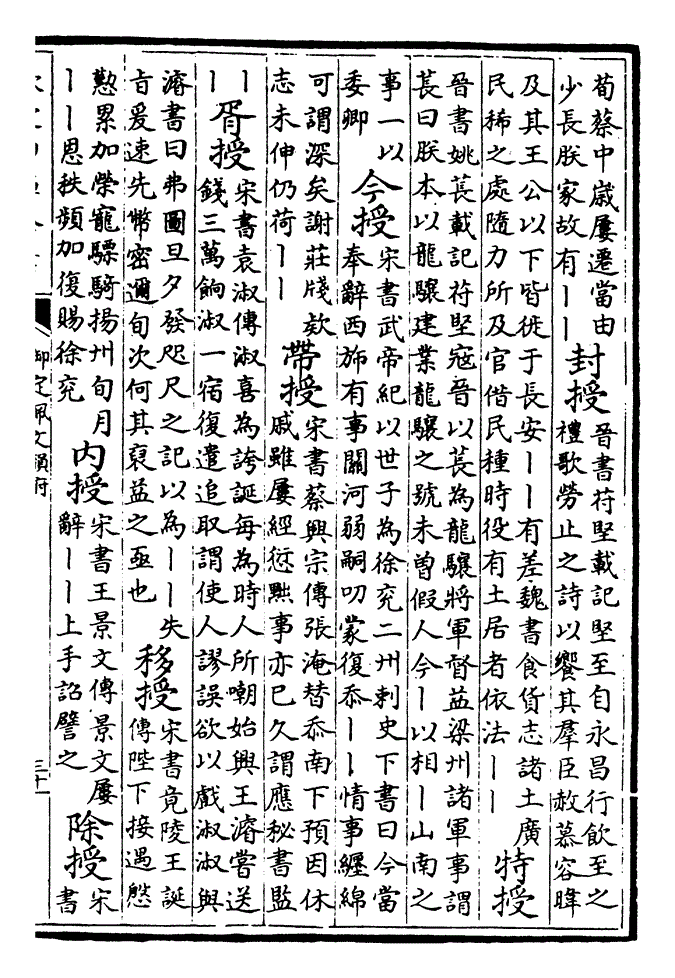 荀蔡中歲屢遷當由
少長朕家故有——
封授
晉書苻堅載記堅至自永昌行飲至之
禮歌勞止之詩以饗其羣臣赦慕容暐
及其王公以下皆徙于長安——有差魏書食貨志諸土廣
民稀之處隨力所及官偕民種時役有土居者依法——
特授
晉書姚萇載記苻堅寇晉以萇為龍驤將軍督益梁州諸軍事謂
萇曰朕本以龍驤建業龍驤之號未曾假人今—以相—山南之
事一以
委卿
今授
宋書武帝紀以世子為徐兖二州刺史下書曰今當
奉辭西斾有事關河弱嗣叨蒙復忝——情事纒綿
可謂深矣謝莊牋欵
志未伸仍荷——
帶授
宋書蔡興宗傳張淹替忝南下預因休
戚雖屢經愆黜事亦已久謂應秘書監
—
—
胥授
宋書袁淑傳淑喜為誇誕每為時人所嘲始興王濬嘗送
錢三萬餉淑一宿復遣追取謂使人謬誤欲以戲淑淑與
濬書曰弗圖旦夕發咫尺之記以為——失
旨爰速先幣密邇旬次何其裒益之亟也
移授
宋書竟陵王誕
傳陛下接遇慇
懃累加榮寵驃騎揚州旬月
——恩秩頻加復賜徐兖
内授
宋書王景文傳景文屢
辭——上手詔譬之
除授
宋
書
御定佩文韻府
三十